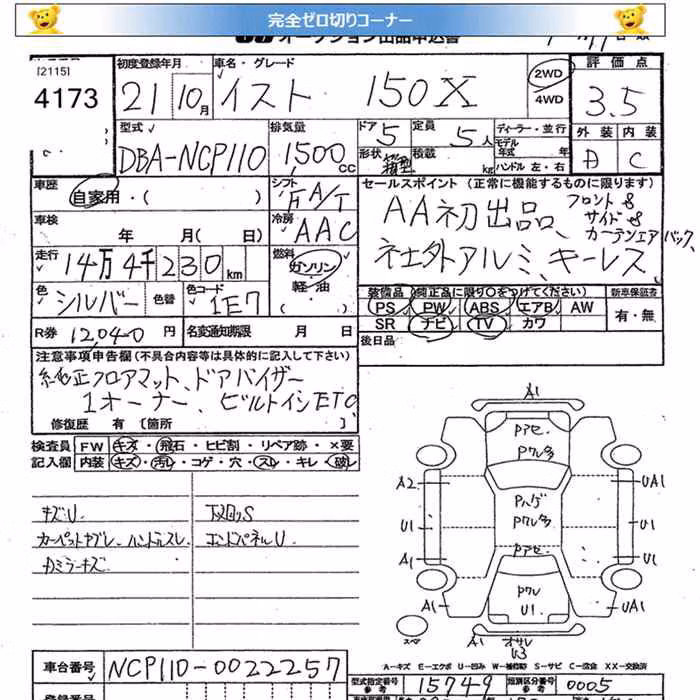 完全ゼロ切りコーナー
オークション出品申込書
[2115]
4173
初度登録年月
21 10月
車名・グレード
イスト 150X
2WD
4WD
評価点
3.5
外装 内装
B C
型式
DBA-NCP110
排気量
1500cc
ドア 5
定員 5人
形状 箱型
積載 kg
ディーラー・並行
モデル年式 年
ハンドル 左・右
車歴
自家用・( )
シフト
FA/T
車検
年 月( 日)
冷房
AAC
走行
14万4千230km
燃料
ガソリン
軽・油
( )
色
シルバー
色替
色コード
1E7
R券 12,040円
名変通知期限 月 日
セールスポイント (正常に機能するものに限ります)
AA初出品、フロント&サイド&カーテンエアバック、
社外アルミ、キーレス
装備品(純正品に限り○をつけてください)
PS PW ABS エアB AW
SR ナビ TV カワ
新車保証書
有・無
後日品
注意事項申告欄(不具合内容等は具体的に記入して下さい)
純正フロアマット、ドアバイザー
1オーナー、ビルトインETC
修復歴 有[箇所 ]
検査員記入欄
FW キズ・飛石・ヒビ割・リペア跡・×要
内装 キズ・汚レ・コゲ・穴・スレ・キレ・破レ
キズU. 下廻りS
カーペットキブレ、ハンドルスレ エンドパネルU
カミラーキズ
A1
Pアセ
Pワレ多
A2 UA1
Pハゲ
Pワレ多
U1 U1
Pアセ
A1 U1
Pワレ
U1
A1 UA1
スペア
A1 オサレ
U3
A-キズ E-エクボ U-凹み W-補修跡 S-サビ C-腐食 XX-交換済
車台番号
NCP110-0022257
型式指定番号
参考
15749
類別区分番号
参考
0005